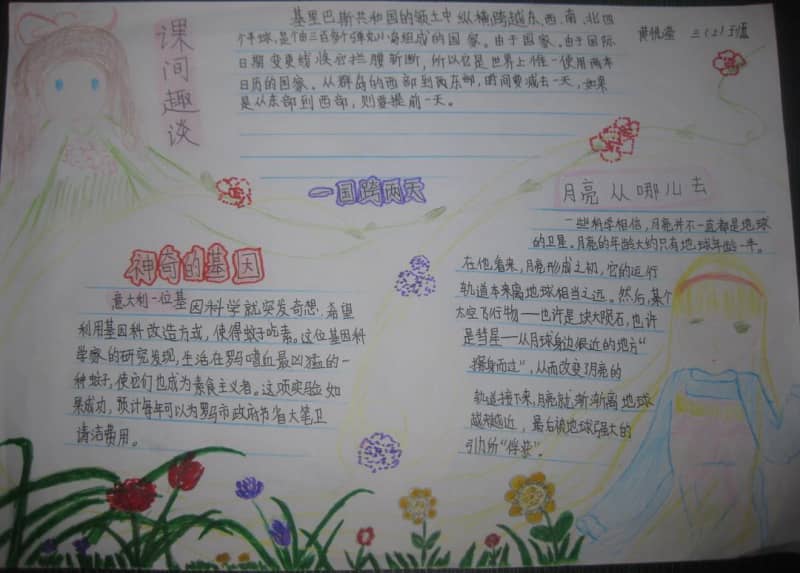 课间趣谈
基里巴斯共和国的领土中纵横跨越东、西、南、北四
个半球,是个由三百多个弹丸小岛组成的国家。由于国家。由于国际
日期变更线恢宏拦腰斩断,所以它是世界上惟一使用两本
日历的国家。从群岛的西部到西东部,时间要减去一天,如果
是从东部到西部,则要提前一天。
三(2)班
一国跨两天
月亮从哪儿去
一些科学相信,月亮并不一直都是地球
的卫星。月亮的年龄大约只有地球年龄一半。
在他看来,月亮形成之初,它的运行
轨道本来离地球相当之远。然后,某个
太空飞行物——也许是块大陨石,也许
是彗星——从月球身边很近的地方“
擦身而过”,从而改变了月亮的
轨道接下来,月亮就渐渐离地球
越来越近,最后被地球强大的
引力所“俘获”。
神奇的基因
意大利一位基因科学就突发奇想,希望
利用基因科改造方式,使得蚊子吃素。这位基因科
学家的研究发现,生活在罗马嗜丘最凶猛的一
种蚊子,使它们也成为素食主义者。这项实验如
果成功,预计每年可以为罗马市政府节省大笔卫
清洁费用。